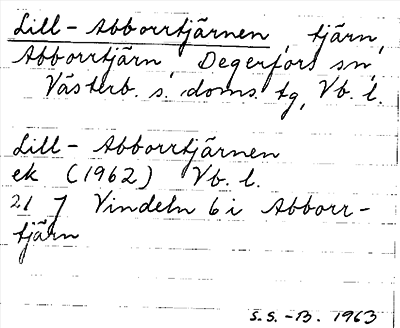 Lill-Abborrtjärnen, tjärn,
Abborrtjärn, Degerfors sn,
Västerb. s. doms. tg, Vb. l.
Lill-Abborrtjärnen
ek (1962) Vb. l.
21 J Vindeln 6 i Abborr-
tjärn
S.S.-B. 1963